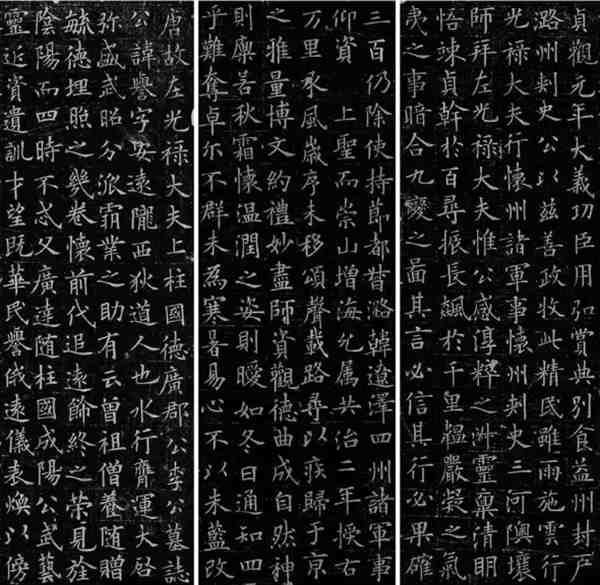 貞觀元年大義功臣用弘賞典別食益州封戶
潞州刺史公以茲善政收此精民雖雨施雲行
光祿大夫行懷州諸軍事懷州刺史三河隩壤
師拜左光祿大夫惟公感淳粹之靈稟清明
悟竦貞幹於百尋振長飆於千里韞嚴凝之氣
夷之事暗合九變之啚其言必信其行必果確
三百仍除使持節都督潞韓遼澤四州諸軍事
仰資 上聖而崇山增海允属共治二年授右
万里承風歲序未移頌聲載路尋以疾歸于京
之雅量博文約禮妙盡師資觀德曲成自然神
則廩若秋霜懷温潤之姿則曖如冬日通知四
乎難奪卓尔不群未為寒暑易心不以朱藍改
唐故左光祿大夫上柱國德廣郡公李公墓誌
公諱譽字安遠隴西狄道人也水行膺運大啓
弥盛武昭分派霸業之助有云曾祖僧養随贈
毓德埋照之幾卷懷前代追遠飾終之榮見旌
陰陽而四時不忒父廣達随柱國成陽公武藝
靈資遺訓才望既華民譽俄遠儀表煥以傍